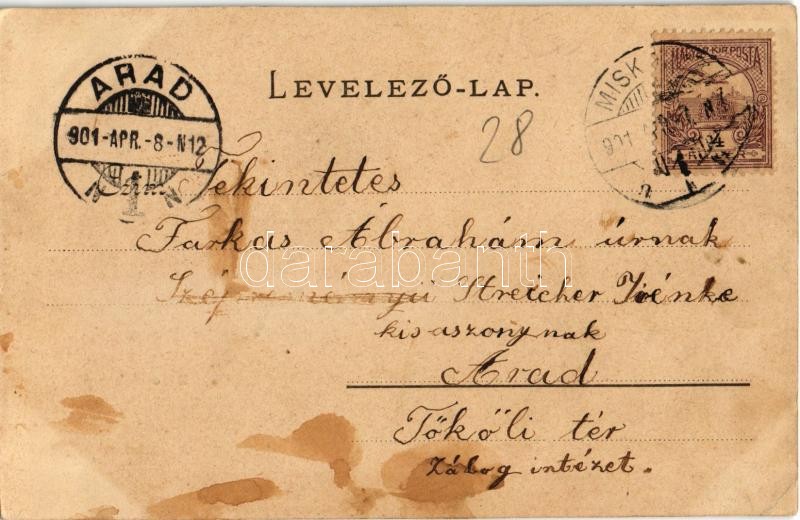 ARAD
901-APR.-8-N12
N 1 N
LEVELEZŐ-LAP.
MISK
901
MAGYAR KIR. POSTA
28
Tekintetes
Farkas Ábrahám úrnak
Streicher Irénke
kisaszonynak
Arad
Tököli tér
Zálog intézet.
darabanth